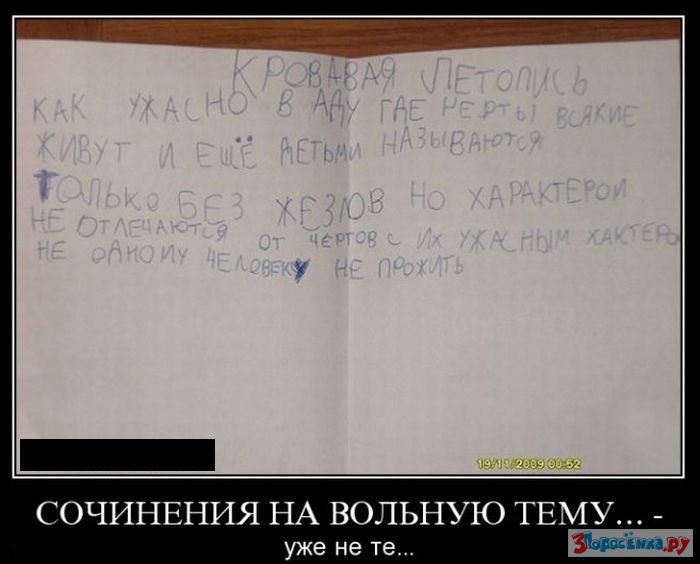 КРОВАВАЯ ЛЕТОПИСЬ
КАК УЖАСНО В АДУ ГДЕ ЧЕРТЫ ВСЯКИЕ
ЖИВУТ И ЕЩЁ ДЕТЬМИ НАЗЫВАЮТСЯ
ТОЛЬКО БЕЗ ЖЕЗЛОВ НО ХАРАКТЕРОМ
НЕ ОТЛЕЧАЮТСЯ ОТ ЧЕРТОВ С ИХ УЖАСНЫМ ХАКТЕРО
НЕ ОДНОМУ ЧЕЛОВЕКУ НЕ ПРОЖИТЬ
19/11/2009 00:52
СОЧИНЕНИЯ НА ВОЛЬНУЮ ТЕМУ... -
уже не те...
3Поросёнка.ру